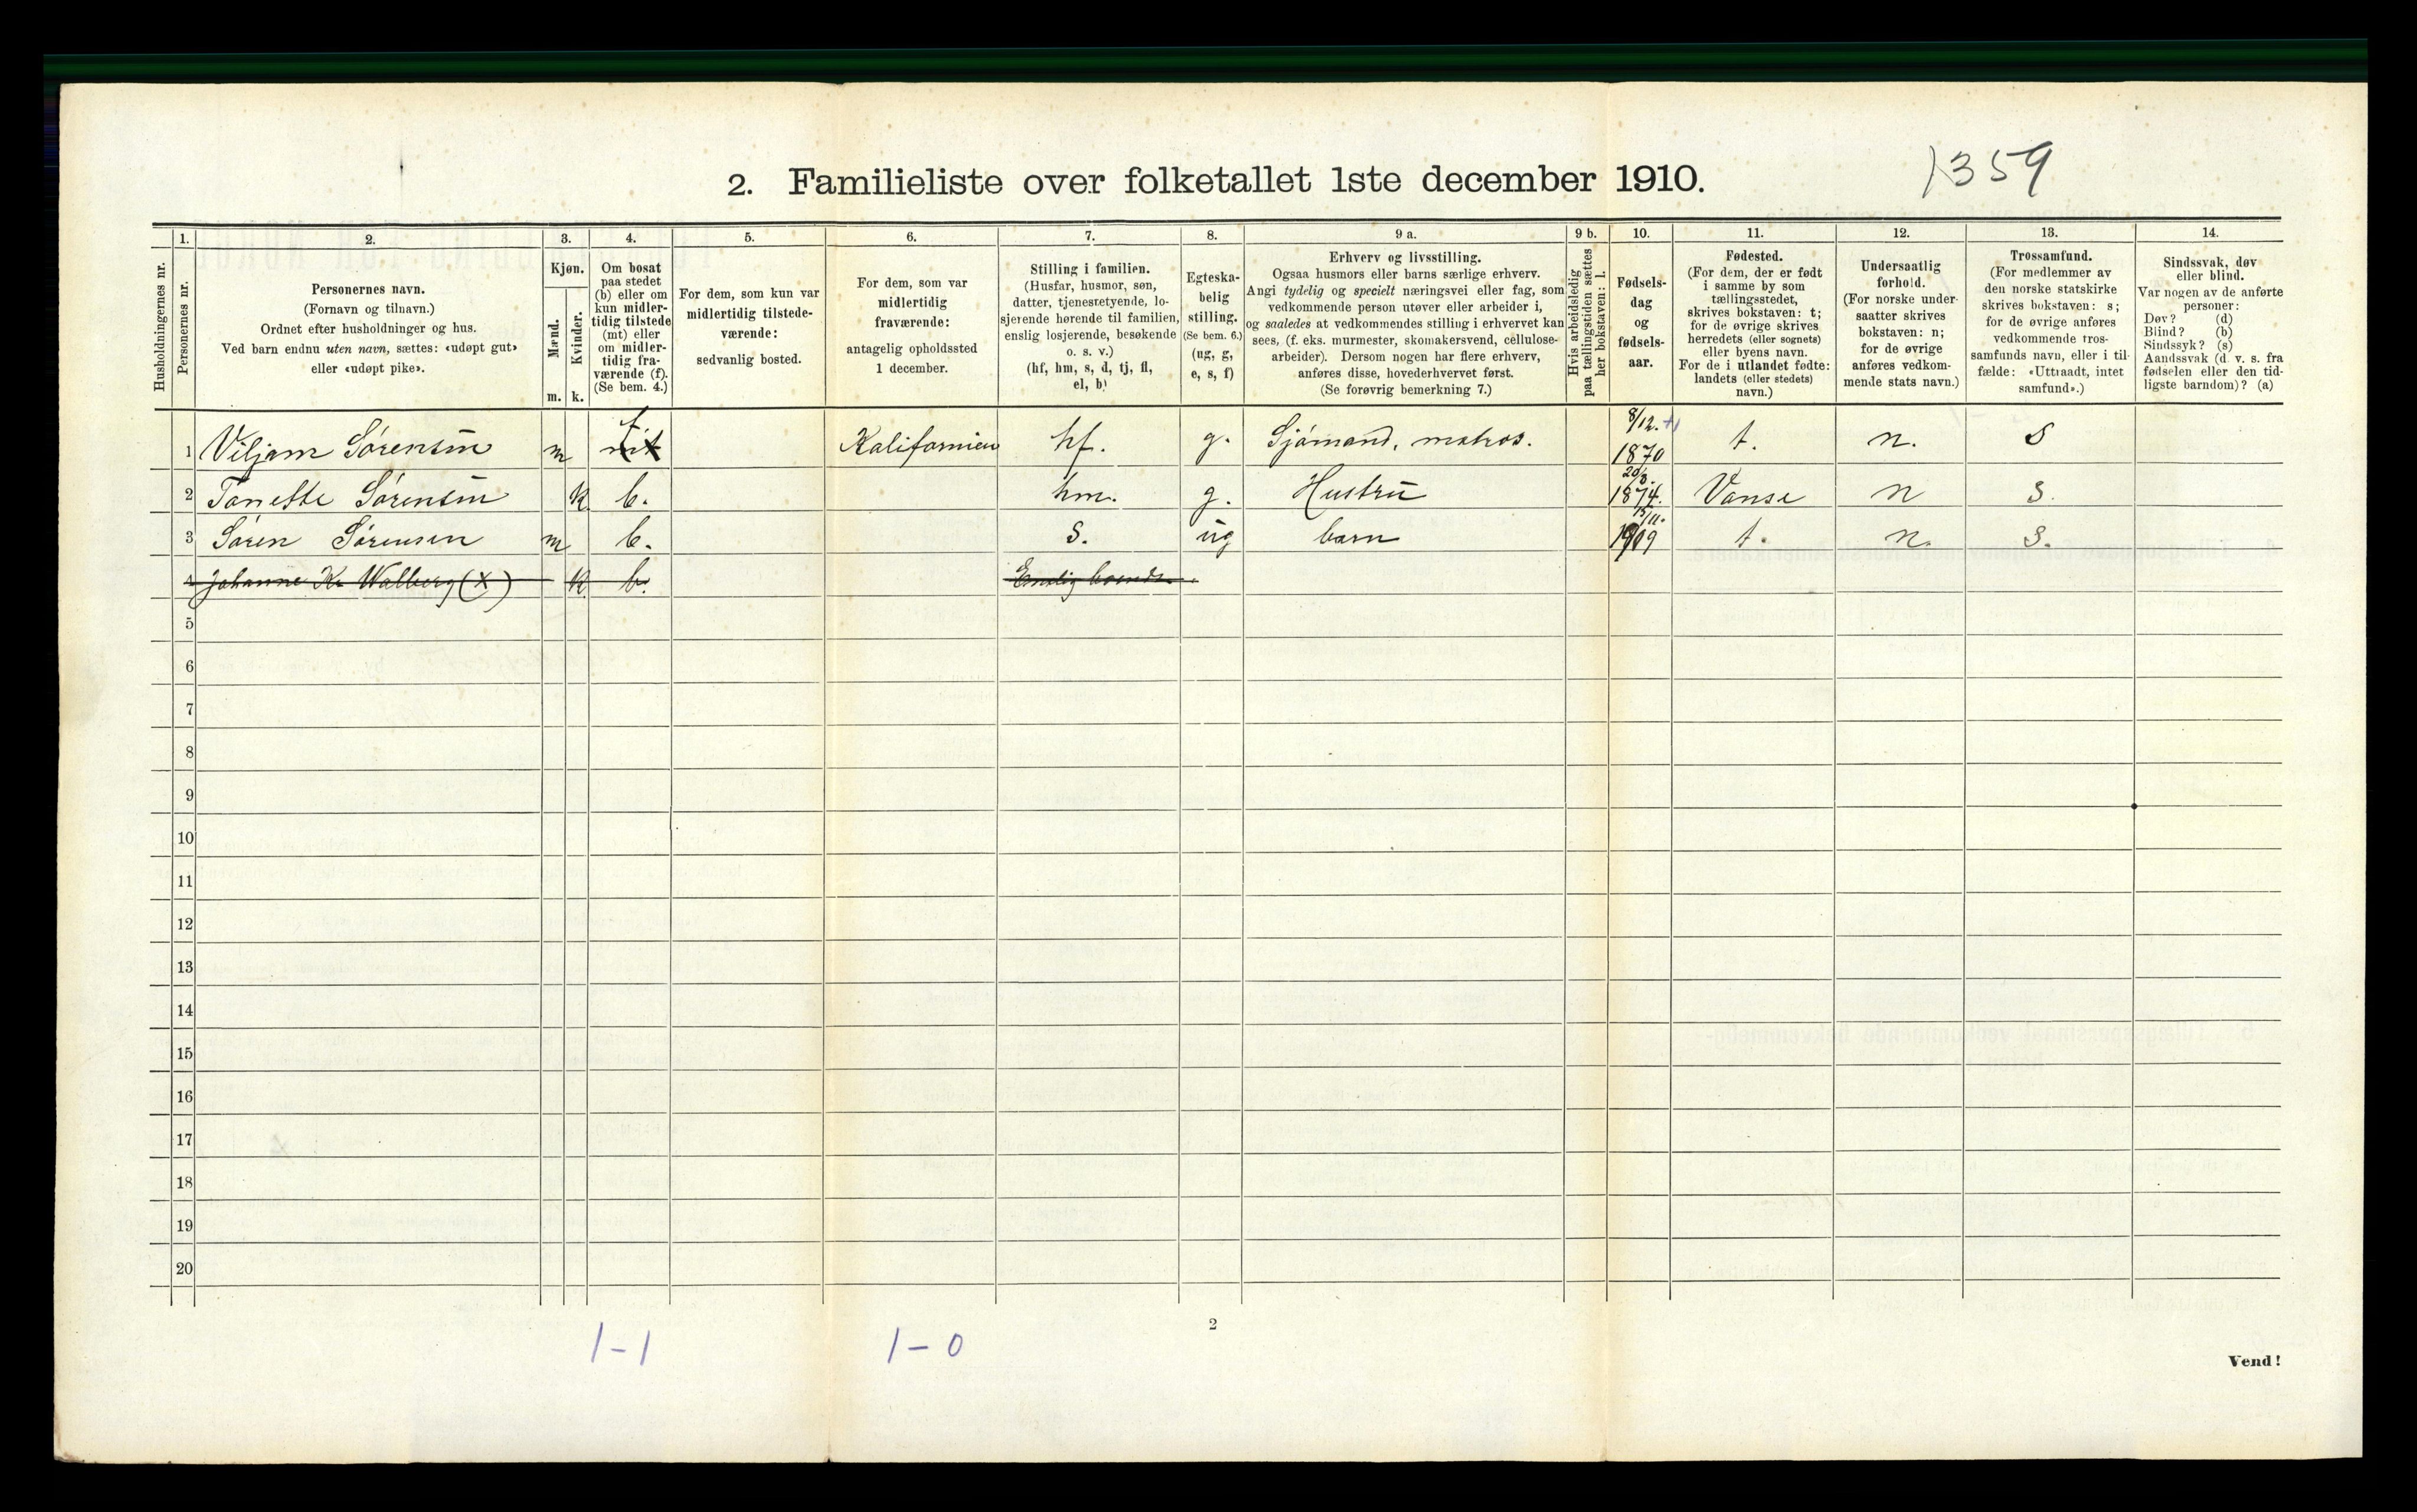 1359
2. Familieliste over folketallet 1ste december 1910.
1. 2. 3. 4. 5. 6. 7. 8. 9 a. 9 b. 10. 11. 12. 13. 14.
Husholdningernes nr.
Personernes nr.
Personernes navn.
(Fornavn og tilnavn.)
Ordnet efter husholdninger og hus.
Ved barn endnu uten navn, sættes: «udøpt gut»
eller «udøpt pike».
Kjøn.
Mænd.
m.
Kvinder.
k.
Om bosat
paa stedet
(b) eller om
kun midler-
tidig tilstede
(mt) eller
om midler-
tidig fra-
værende (f).
(Se bem. 4.)
For dem, som kun var
midlertidig tilstede-
værende:
sedvanlig bosted.
For dem, som var
midlertidig
fraværende:
antagelig opholdssted
1 december.
Stilling i familien.
(Husfar, husmor, søn,
datter, tjenestetyende, lo-
sjerende hørende til familien,
enslig losjerende, besøkende
o. s. v.)
(hf, hm, s, d, tj, fl,
el, b)
Egteska-
belig
stilling.
(Se bem. 6.)
(ug, g,
e, s, f)
Erhverv og livsstilling.
Ogsaa husmors eller barns særlige erhverv.
Angi tydelig og specielt næringsvei eller fag, som
vedkommende person utøver eller arbeider i,
og saaledes at vedkommendes stilling i erhvervet kan
sees, (f. eks. murmester, skomakersvend, cellulose-
arbeider). Dersom nogen har flere erhverv,
anføres disse, hovederhvervet først.
(Se forøvrig bemerkning 7.)
Hvis arbeidsledig
paa tællingstiden sættes
her bokstaven: l.
Fødsels-
dag
og
fødsels-
aar.
Fødested.
(For dem, der er født
i samme by som
tællingsstedet,
skrives bokstaven: t;
for de øvrige skrives
herredets (eller sognets)
eller byens navn.
For de i utlandet fødte:
landets (eller stedets)
navn.)
Undersaatlig
forhold.
(For norske under-
saatter skrives
bokstaven: n;
for de øvrige
anføres vedkom-
mende stats navn.)
Trossamfund.
(For medlemmer av
den norske statskirke
skrives bokstaven: s;
for de øvrige anføres
vedkommende tros-
samfunds navn, eller i til-
fælde: «Uttraadt, intet
samfund».)
Sindssvak, døv
eller blind.
Var nogen av de anførte
personer:
Døv? (d)
Blind? (b)
Sindssyk? (s)
Aandssvak (d. v. s. fra
fødselen eller den tid-
ligste barndom)? (a)
1 Viljam Sørensen m mt f. Kalifornien hf. g. Sjømand, matros. 8/12. 1870 t. n. S
2 Tanette Sørensen k b. hm. g. Hustru 1874. Vanse n S.
3 Søren Sørensen m b. S. ug barn 1909 t. n. S.
4 Johanne Kr Walberg (X) k b. Enslig boende.
5
6
7
8
9
10
11
12
13
14
15
16
17
18
19
20
1-1 1-0
2
Vend!